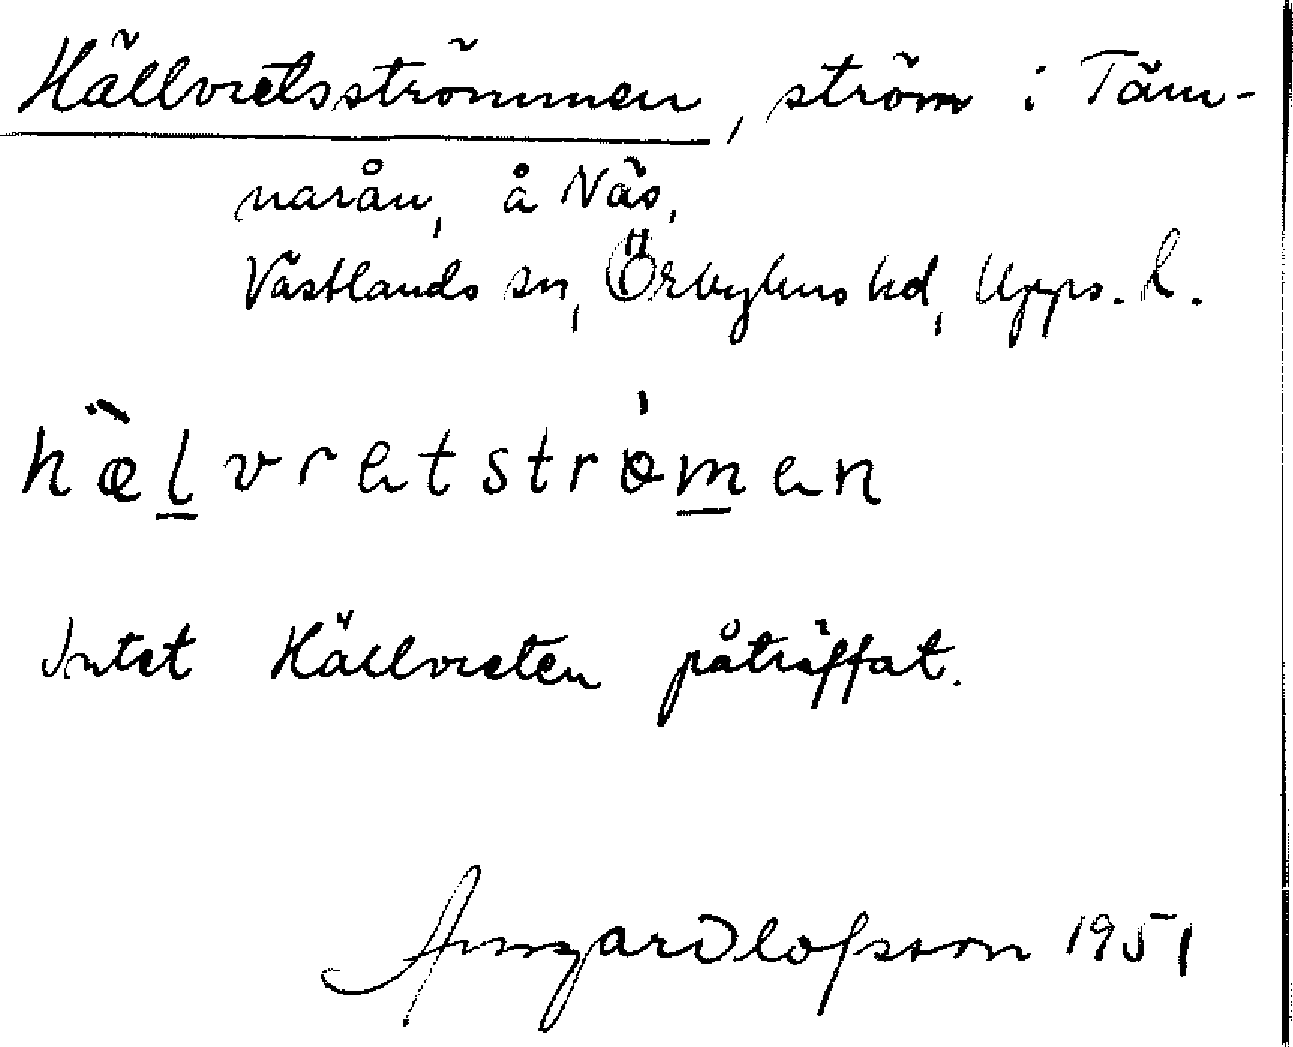 Hällvretsströmmen, ström i Täm-
narån, å Näs,
Västlands sn, Örbyhus hd, Upps. l.
hæ̀lvretstrǿmen
Intet Hällvreten påträffat.
Olofsson 1951